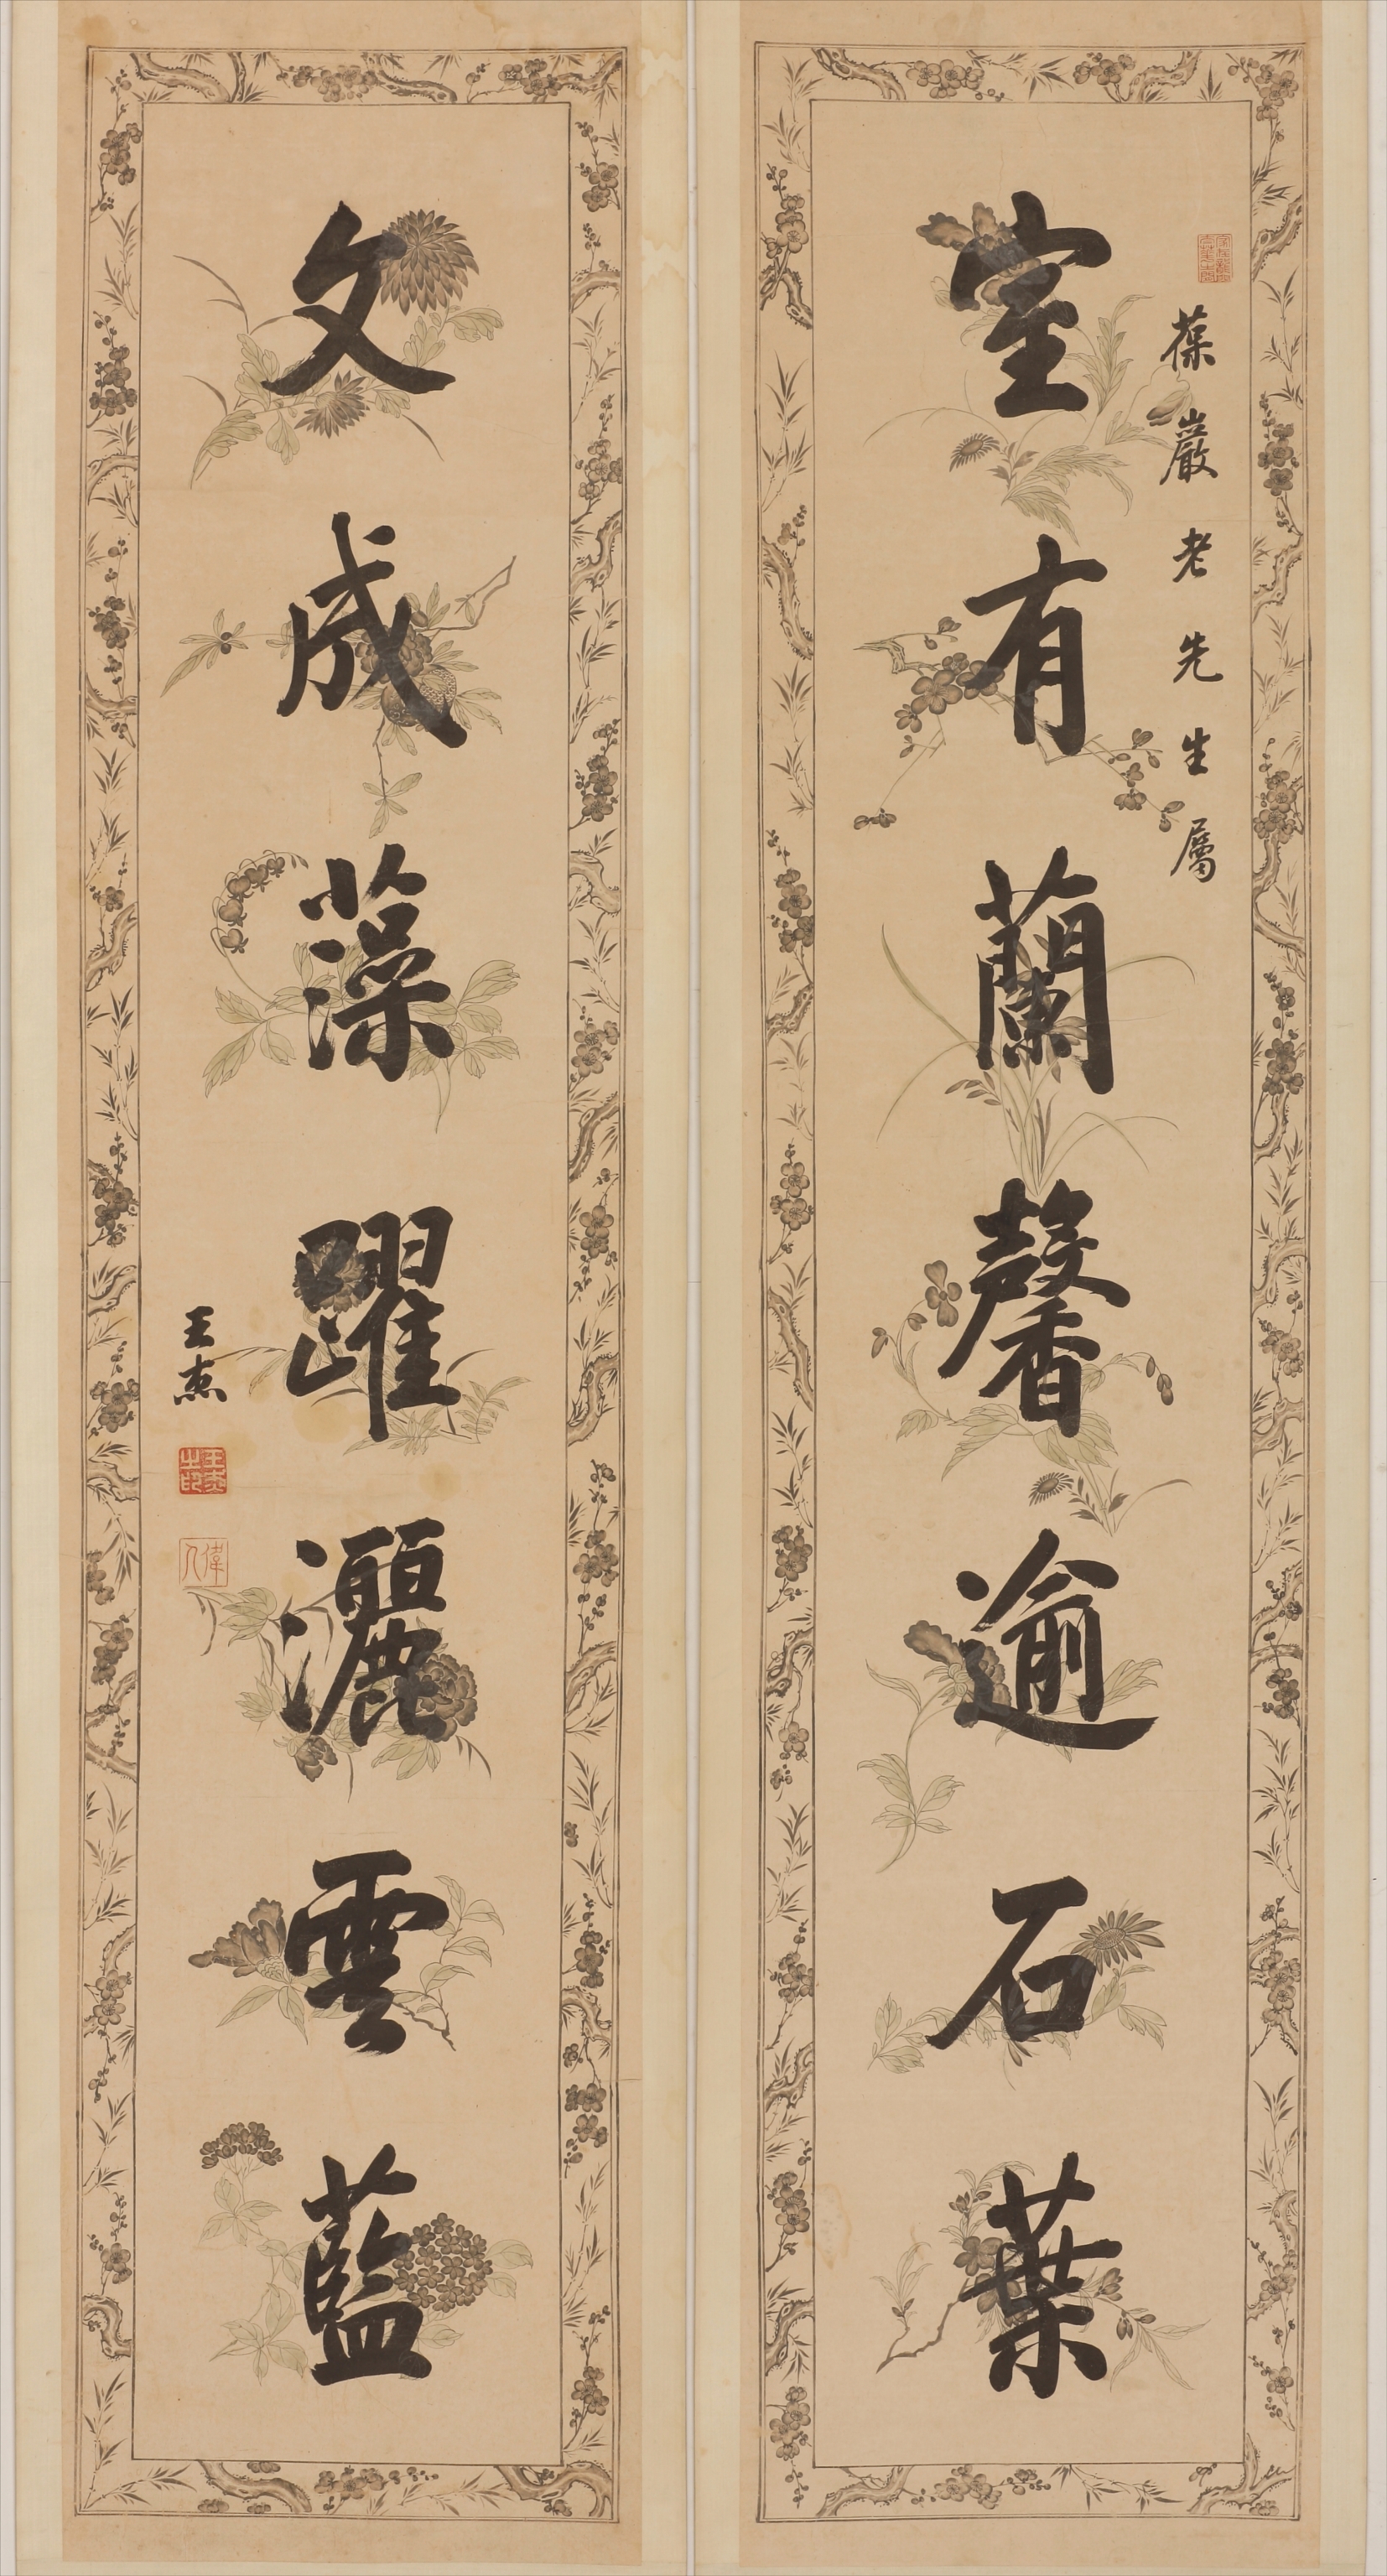 葆巖老先生屬
室有蘭馨逾石葉
文成藻躍灑雲藍
王杰
王杰之印
偉人